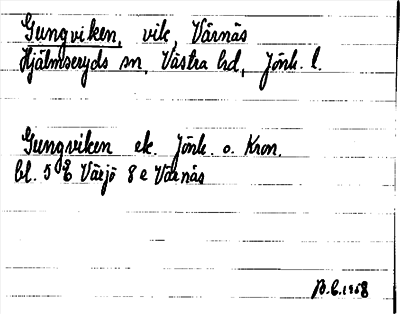 Gungviken, vik, Värnäs
Hjälmseryds sn, Västra hd, Jönk. l.
Gungviken ek. Jönk. o. Kron.
bl. 5 E Växjö 8 e Värnäs
B.E. 1958